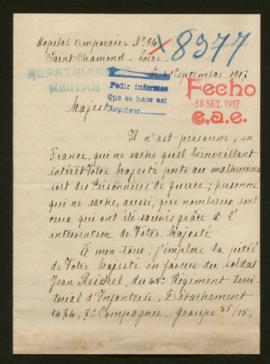 Hopital temporaire N° 94
Saint Chamond - Loire.
8377
REPATRIADO
MILITAR
Septembre 1917
Pedir informes
Que se hace así
Fecho
18 SET. 1917
e.a.e.
Majesté
Il n'est personne, en
France, qui ne sache quel bienveillant
intérêt Votre Majesté porte au malheureux
sort des Prisonniers de guerre; personne
qui ne sache, aussi, que nombreux sont
ceux qui ont été sauvés grâce à l'
intervention de Votre Majesté
À mon tour, j'implore la pitié
de Votre Majesté en faveur du soldat
Jean du 45e Régiment Terri-
torial d'Infanterie, Détachement
1474, 7e Compagnie, groupe 25/15,